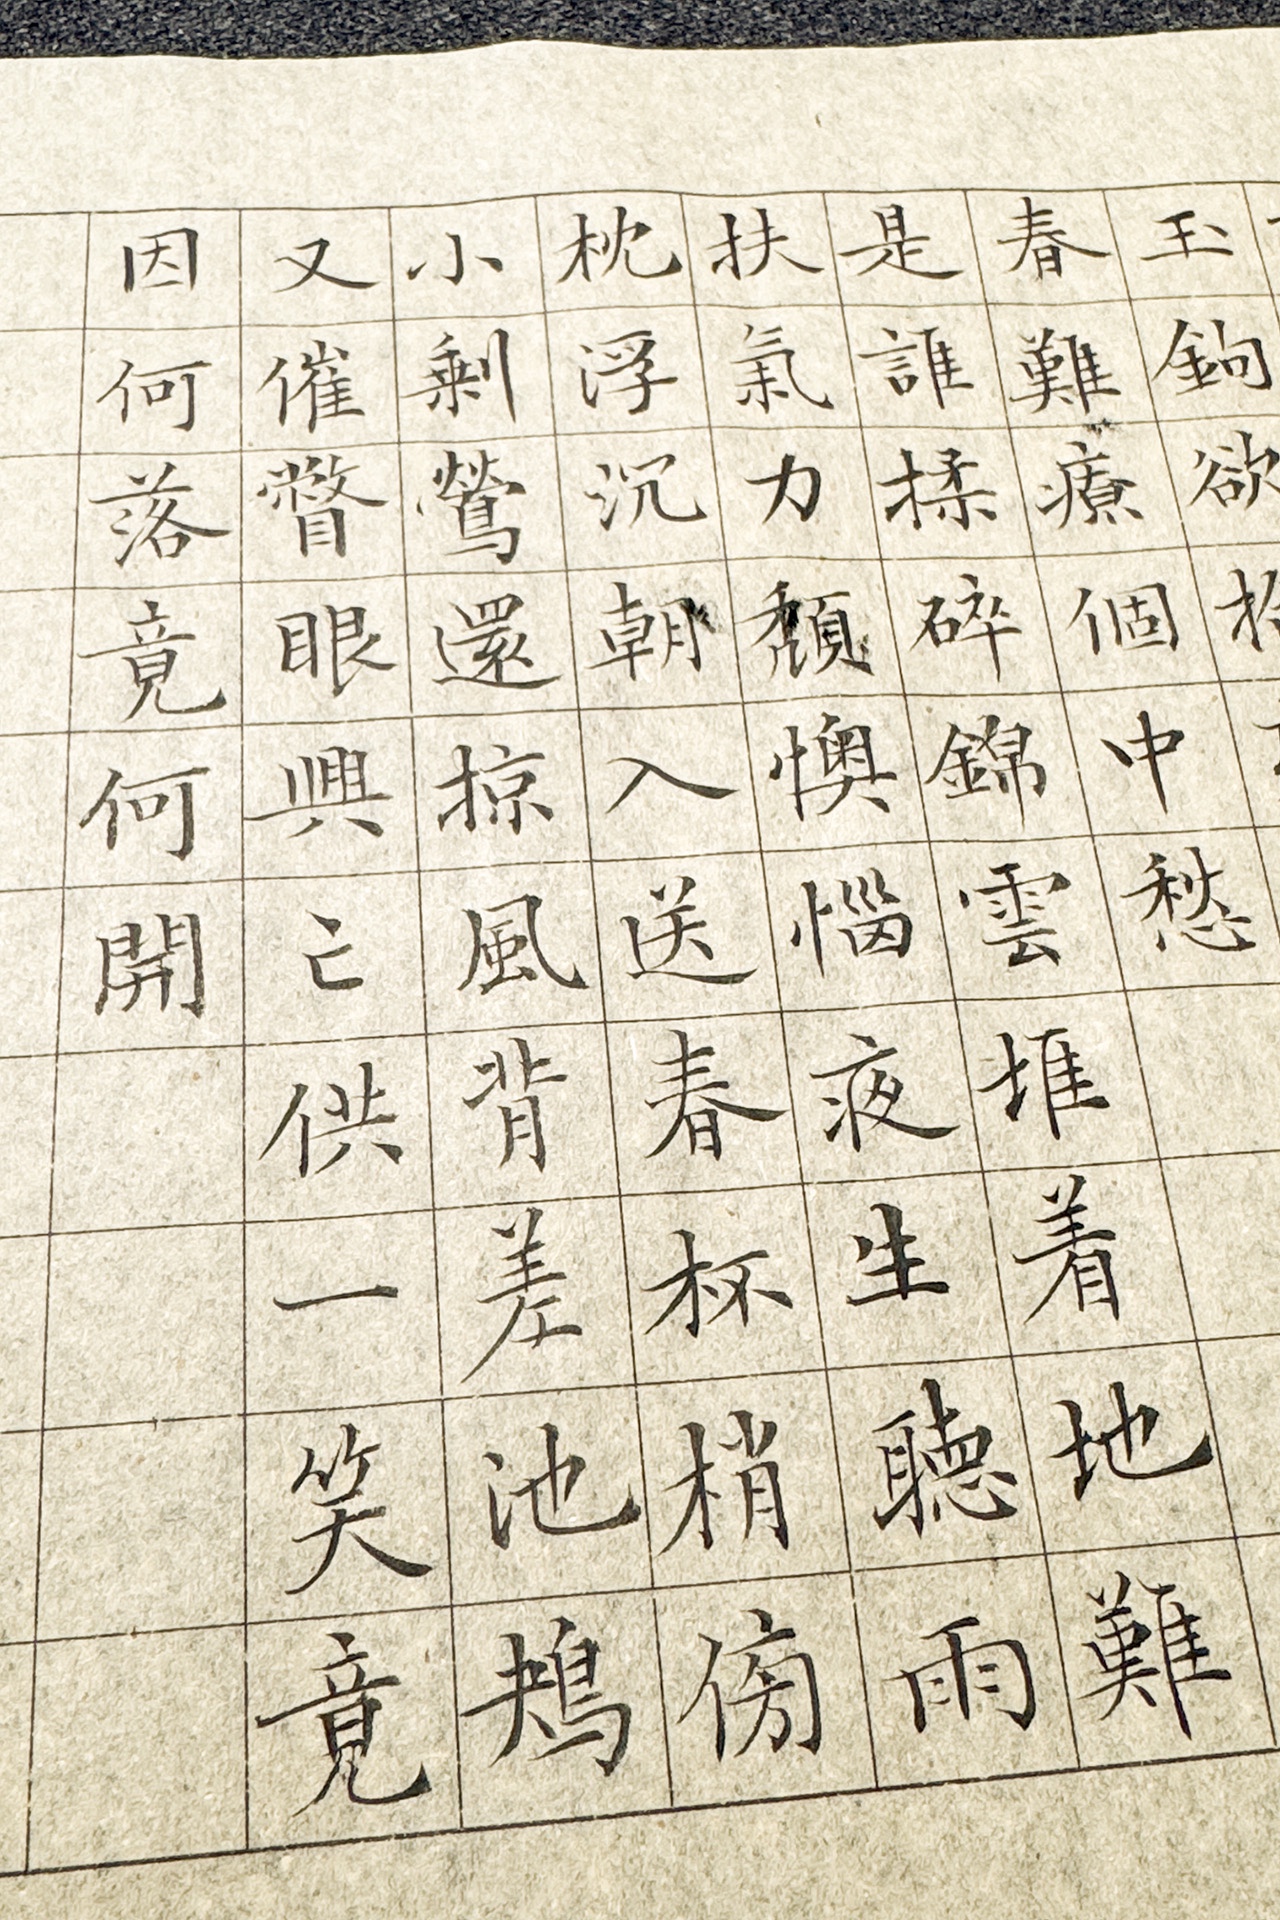 玉鉤欲
春難療個中愁
是誰揉碎錦雲堆着地難
扶氣力頹懊惱夜生聽雨
枕浮沉朝入送春杯梢傍
小剩鶯還掠風背差池鴂
又催瞥眼興亡供一笑竟
因何落竟何開